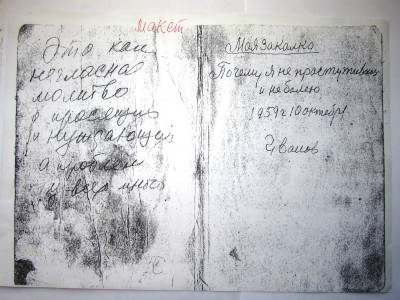 макет
Это как
негласная
молитво
о просящих
и нуждающихся
а проблем
у всех много
Мая Закалка
Почему я не простуживаюсь
и не болею
1959 г 10 октября
Иванов